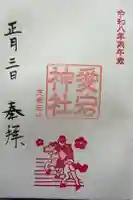 令和八年丙午歳
愛宕
神社
正月三日
奉拝